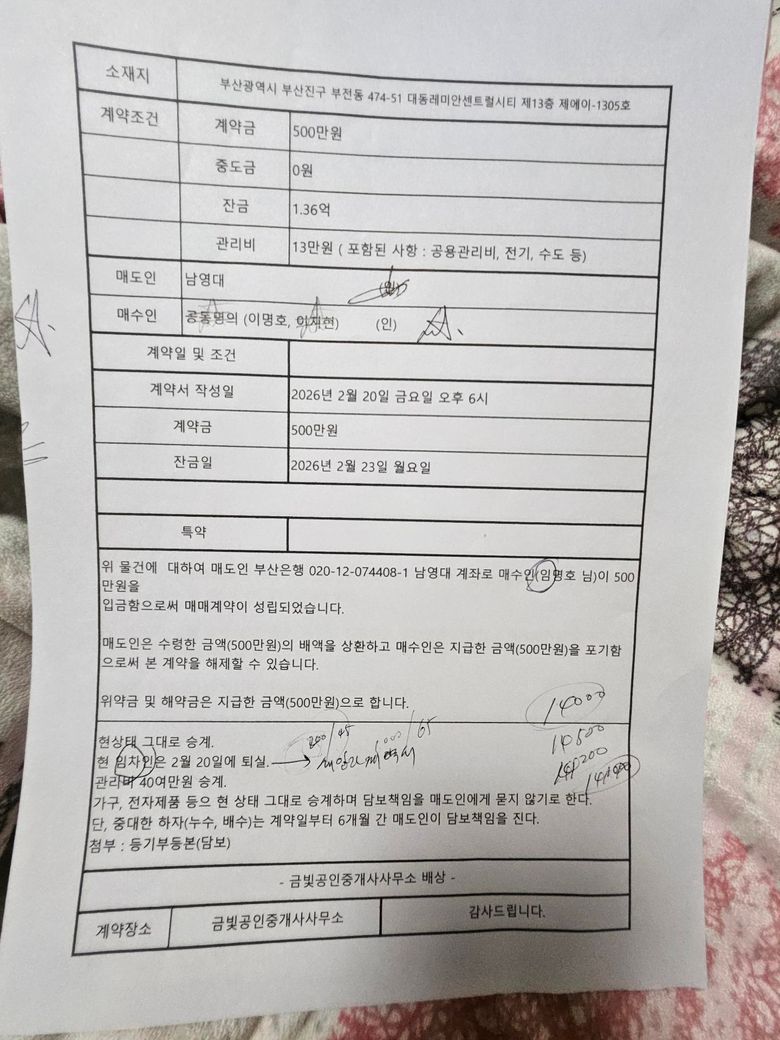 소재지 부산광역시 부산진구 부전동 474-51 대동레미안센트럴시티 제13층 제에이-1305호
계약조건 계약금 500만원
중도금 0원
잔금 1.36억
관리비 13만원 ( 포함된 사항 : 공용관리비, 전기, 수도 등)
매도인 남영대 (인)
매수인 공동명의 (이명호, 이지현) (인)
계약일 및 조건
계약서 작성일 2026년 2월 20일 금요일 오후 6시
계약금 500만원
잔금일 2026년 2월 23일 월요일
특약
위 물건에 대하여 매도인 부산은행 020-12-074408-1 남영대 계좌로 매수인(임명호 님)이 500
만원을
입금함으로써 매매계약이 성립되었습니다.
매도인은 수령한 금액(500만원)의 배액을 상환하고 매수인은 지급한 금액(500만원)을 포기함
으로써 본 계약을 해제할 수 있습니다.
위약금 및 해약금은 지급한 금액(500만원)으로 합니다.
14000
현상태 그대로 승계.
14500
현 임차인은 2월 20일에 퇴실.
관리비 40여만원 승계.
가구, 전자제품 등으 현 상태 그대로 승계하며 담보책임을 매도인에게 묻지 않기로 한다.
단, 중대한 하자(누수, 배수)는 계약일부터 6개월 간 매도인이 담보책임을 진다.
첨부 : 등기부등본(담보)
- 금빛공인중개사사무소 배상 -
계약장소 금빛공인중개사사무소 감사드립니다.